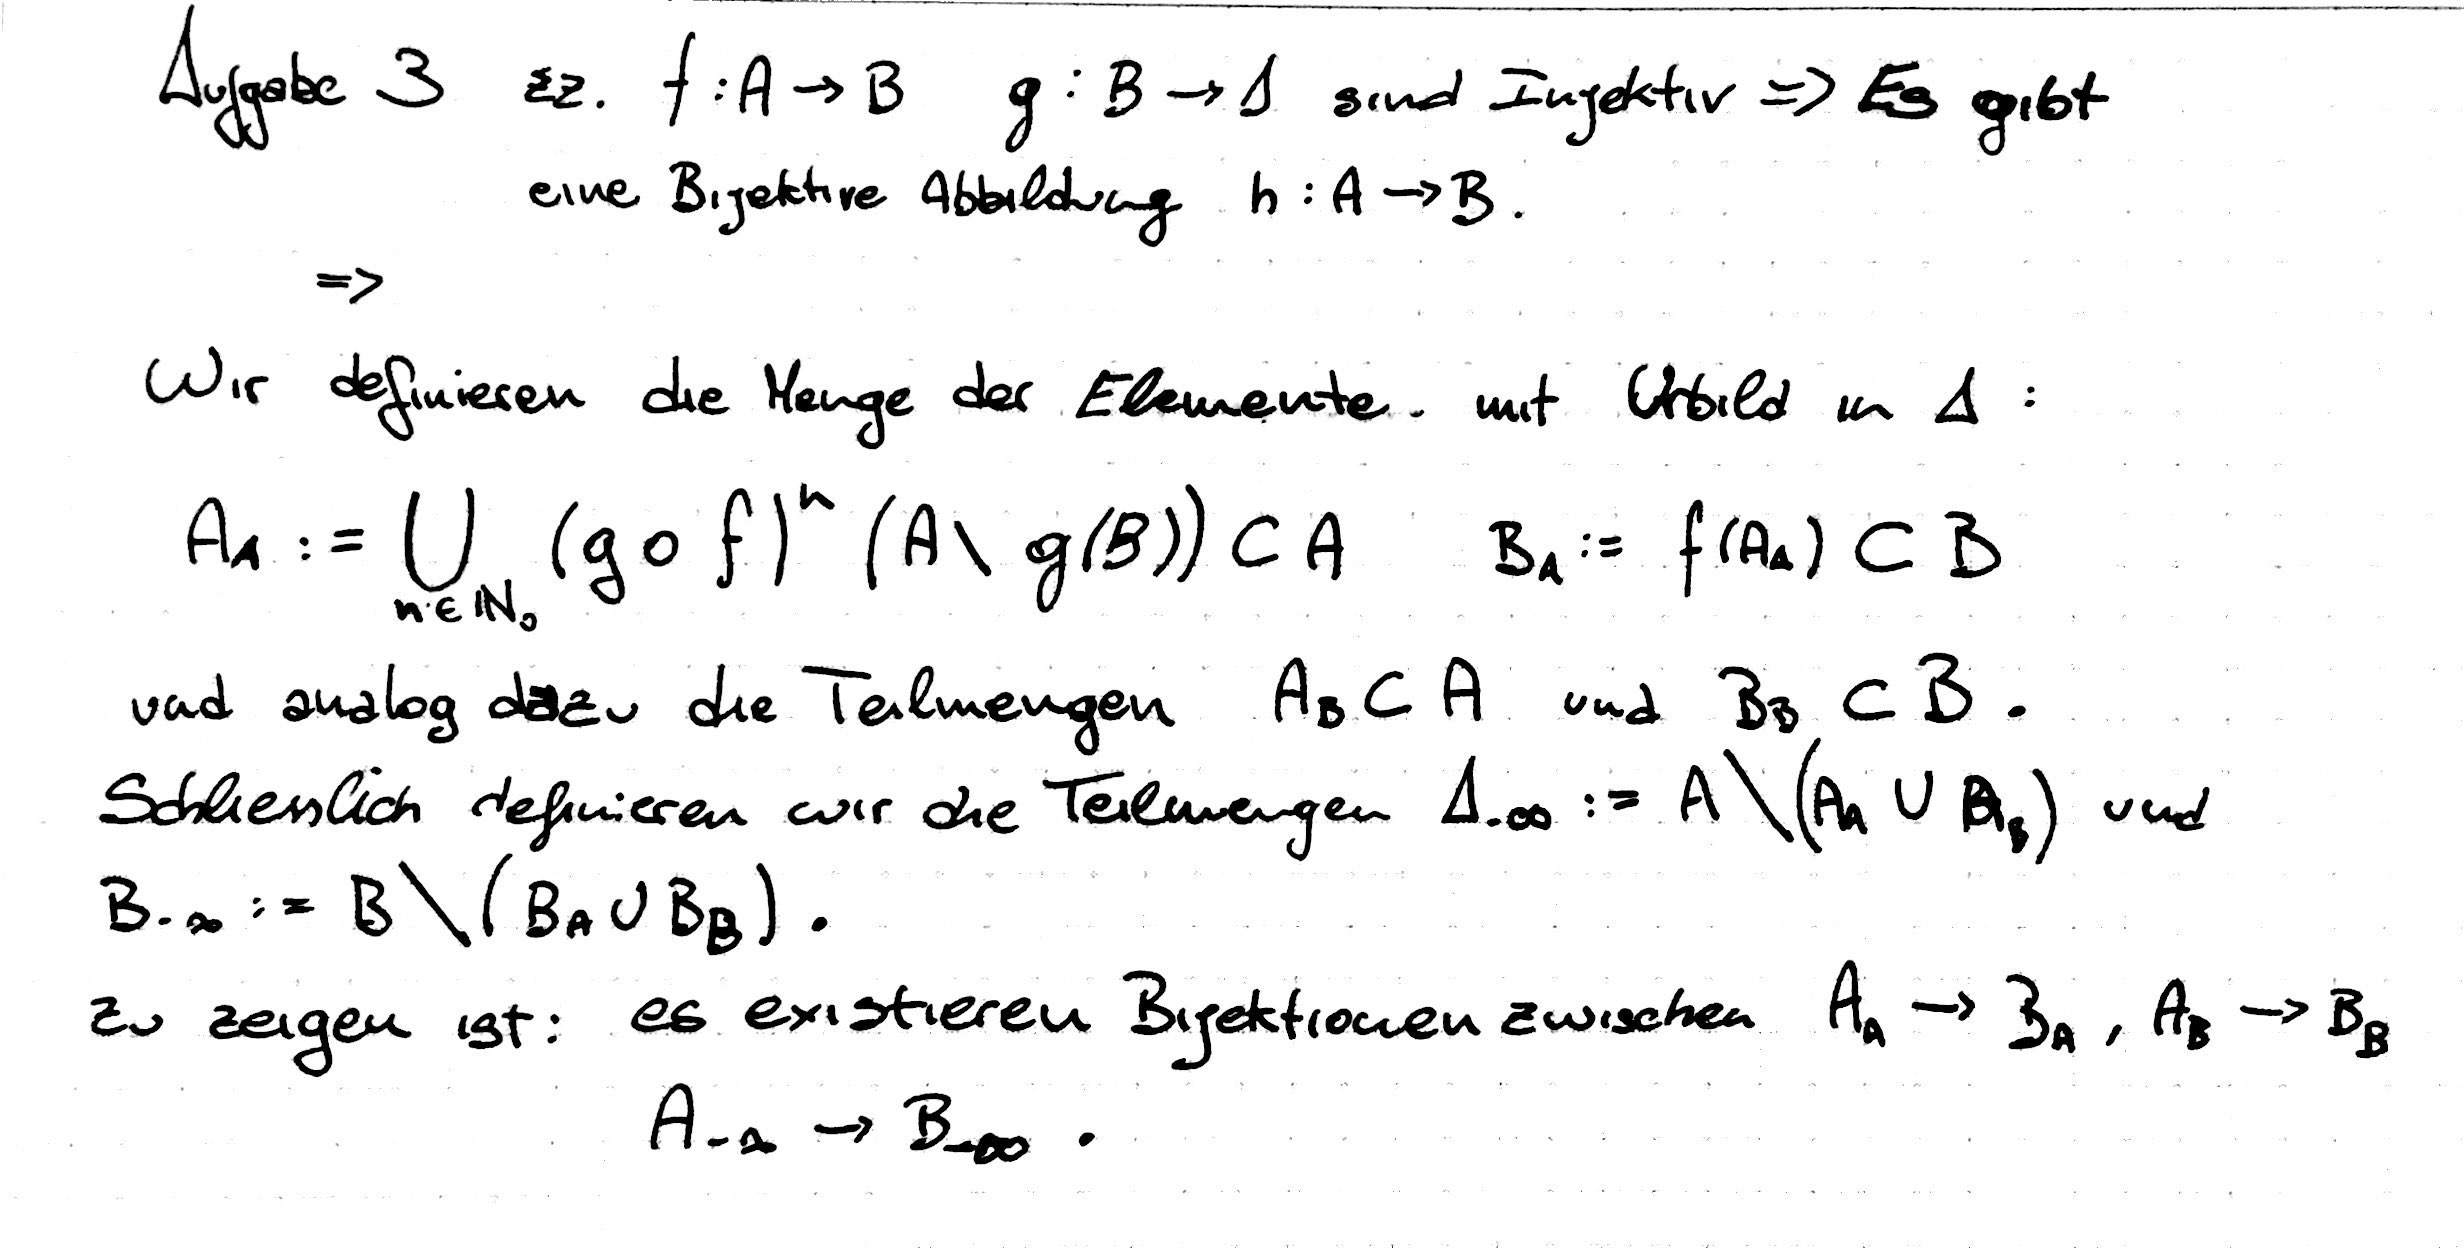 Aufgabe 3 zz. f : A → B g : B → A sind Injektiv => Es gibt
eine Bijektive Abbildung h : A → B.
=>
Wir definieren die Menge der Elemente. mit Urbild in A :
A_A := ⋃_{n ∈ ℕ₀} (g ∘ f)^n (A \ g(B)) ⊂ A B_A := f(A_A) ⊂ B
und analog dazu die Teilmengen A_B ⊂ A und B_B ⊂ B.
Schliesslich definieren wir die Teilmengen A_{-∞} := A \ (A_A ∪ A_B) und
B_{-∞} := B \ (B_A ∪ B_B).
zu zeigen ist: es existieren Bijektionen zwischen A_A → B_A, A_B → B_B
A_{-∞} → B_{-∞}.